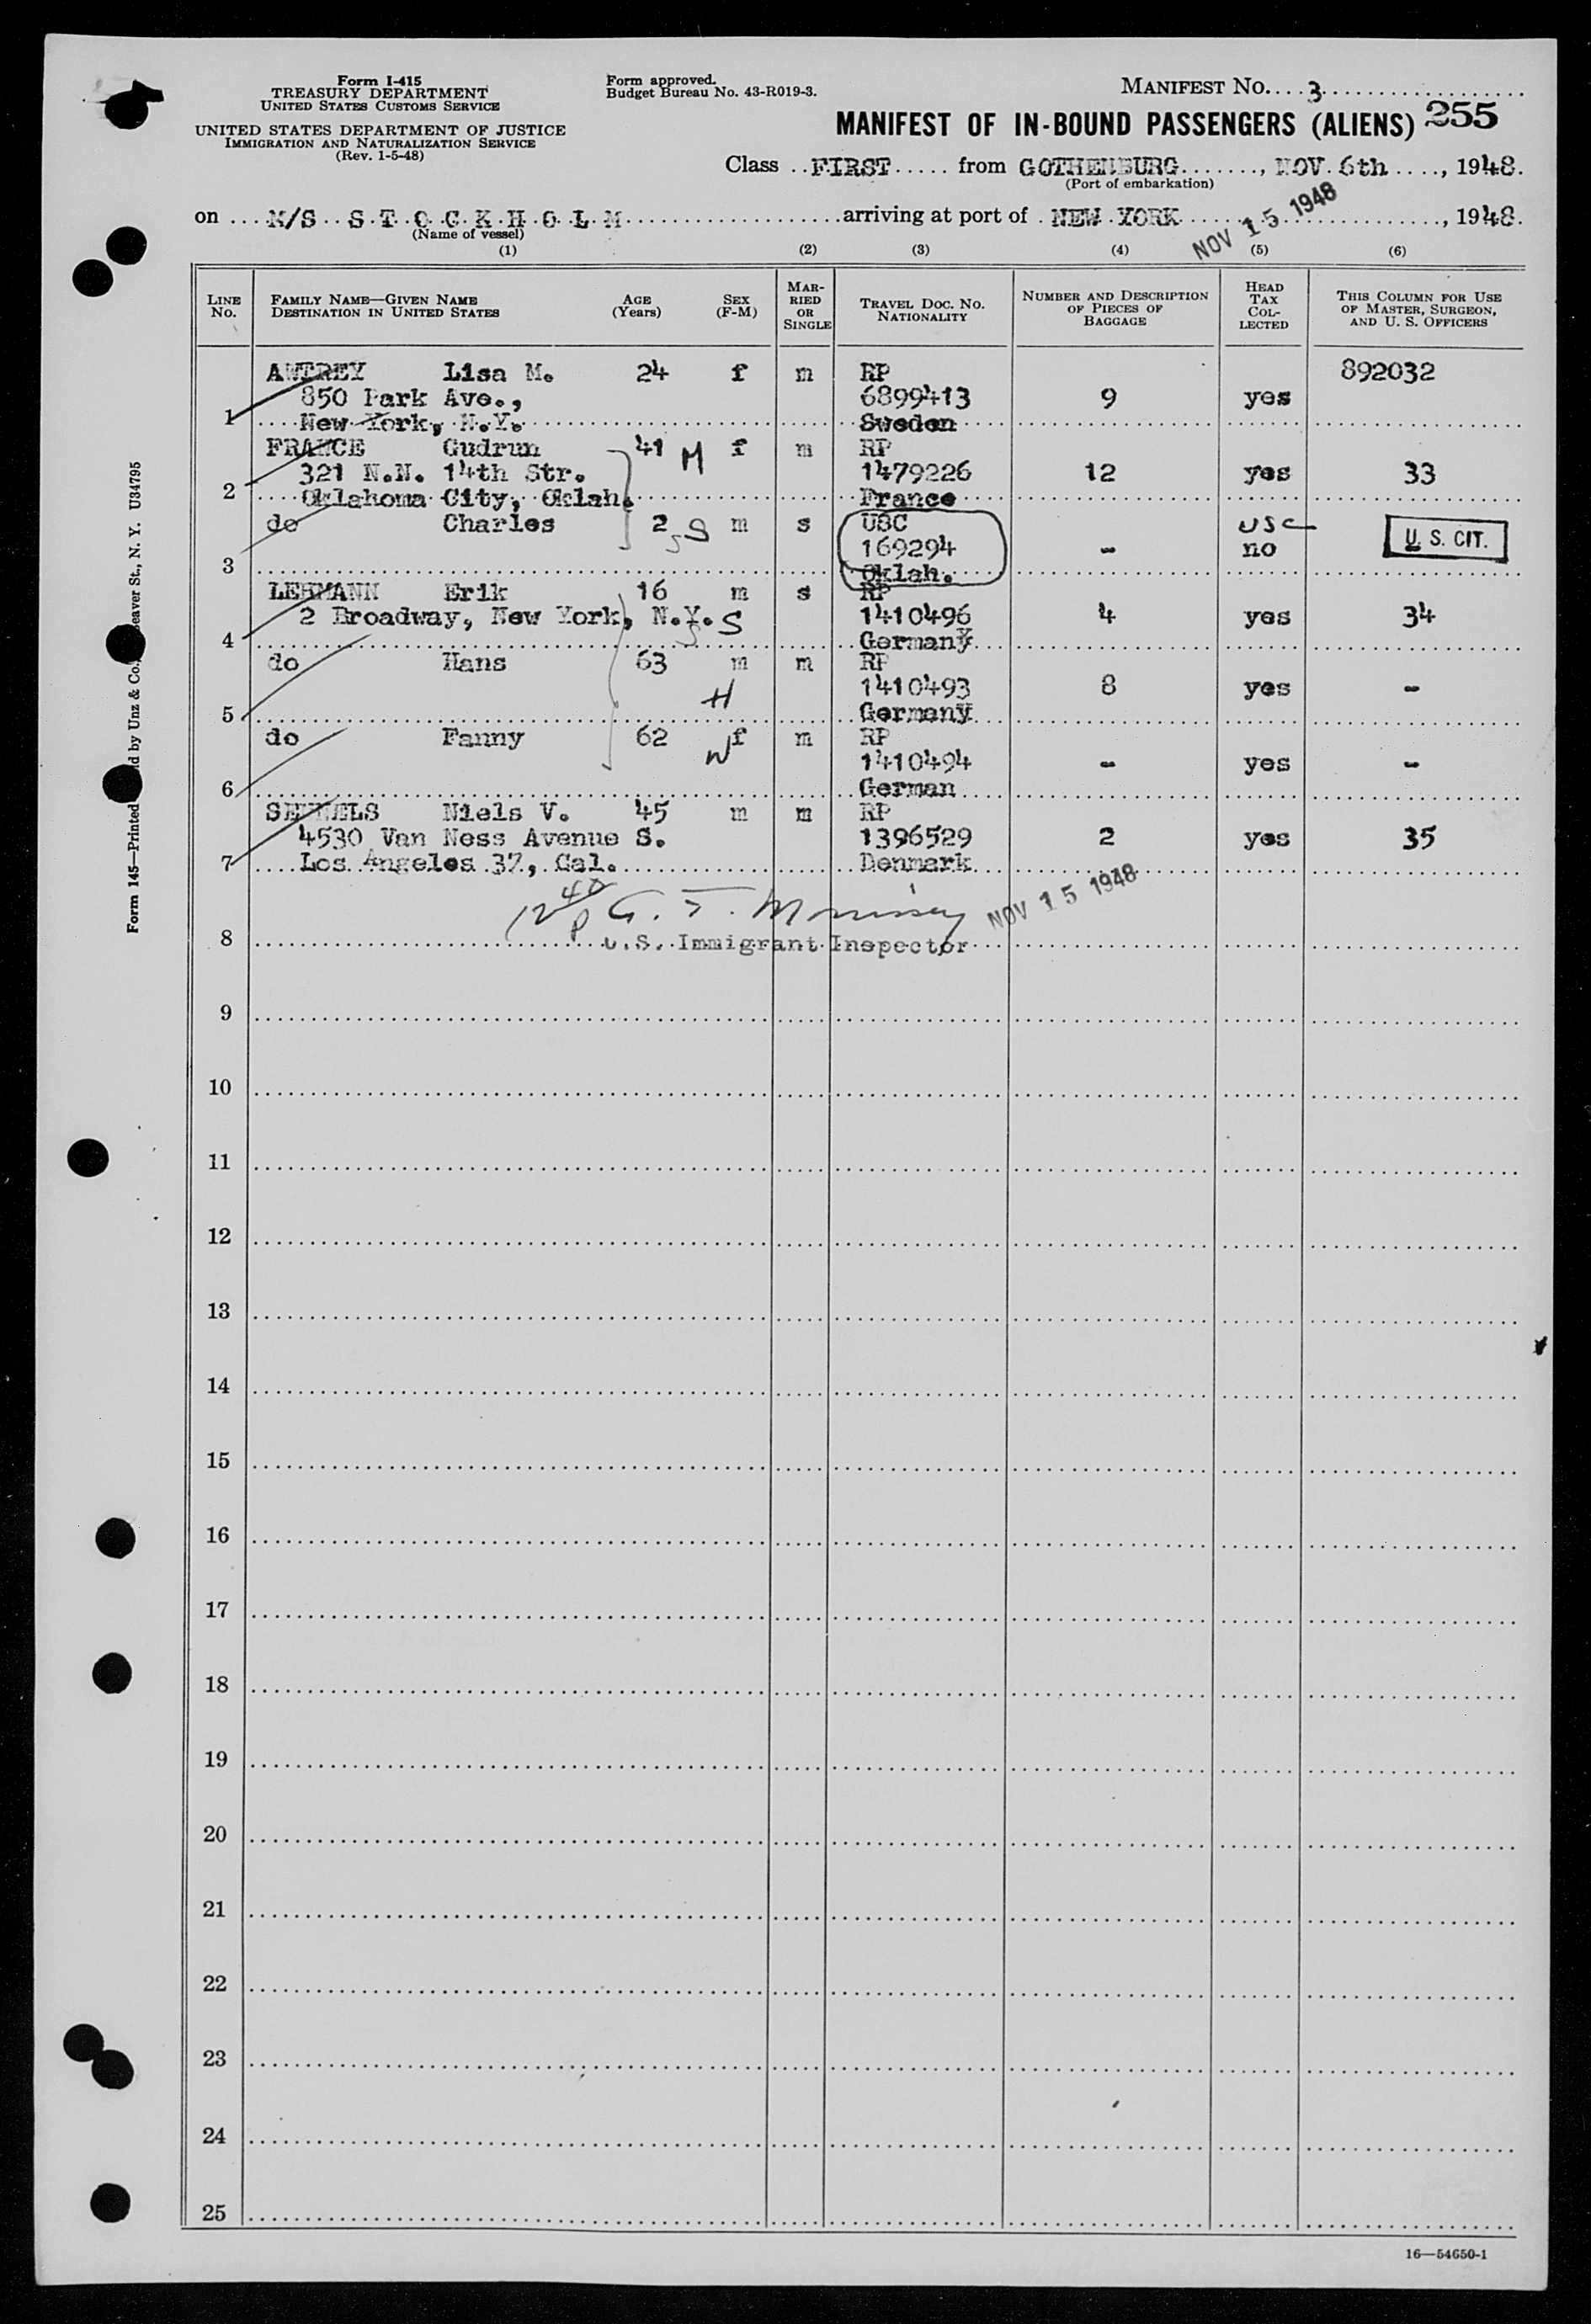 Form I-415
TREASURY DEPARTMENT
UNITED STATES CUSTOMS SERVICE
UNITED STATES DEPARTMENT OF JUSTICE
IMMIGRATION AND NATURALIZATION SERVICE
(Rev. 1-5-48)
Form approved.
Budget Bureau No. 43-R019-3.
MANIFEST NO. 3
MANIFEST OF IN-BOUND PASSENGERS (ALIENS) 255
Class FIRST from GOTHENBURG, NOV. 6th, 1948.
(Port of embarkation)
on M/S S T O C K H O L M arriving at port of NEW YORK NOV 15 1948, 1948.
(Name of vessel)
(1) (2) (3) (4) (5) (6)
LINE NO. FAMILY NAME—GIVEN NAME DESTINATION IN UNITED STATES AGE (Years) SEX (F-M) MARRIED OR SINGLE TRAVEL DOC. NO. NATIONALITY NUMBER AND DESCRIPTION OF PIECES OF BAGGAGE HEAD TAX COLLECTED THIS COLUMN FOR USE OF MASTER, SURGEON, AND U. S. OFFICERS
Lisa M. 24 f m RP 892032
850 Park Ave., 6899413 9 yes
1 New York, N.Y. Sweden
FRANCE Gudrun 41 M f m RP
321 N.N. 14th Str. 1479226 12 yes 33
2 Oklahoma City, Oklah. France
do Charles 2 S m s USC usc U. S. CIT.
S 169294 - no
3 Oklah.
LEHMANN Erik 16 m s RP
2 Broadway, New York, N.Y. S 1410496 4 yes 34
4 S Germany
do Hans 63 m m RP
H 1410493 8 yes -
5 Germany
do Fanny 62 f m RP
W 1410494 - yes -
6 German
Niels V. 45 m m RP
4530 Van Ness Avenue S. 1396529 2 yes 35
7 Los Angeles 37, Cal. Denmark
12 40 P G. J. Morrissey NOV 15 1948
8 U.S. Immigrant Inspector
9
10
11
12
13
14
15
16
17
18
19
20
21
22
23
24
25
16—54650-1
Form 145—Printed d by Unz & Co., eaver St., N. Y. U34795